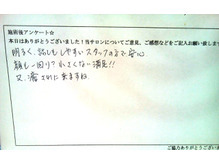 施術後アンケート☆
本日はありがとうございました!当サロンについてご意見、ご感想などをご記入お願い致します
明るく、話しもしやすいスタッフさんで安心
顔も一回り?小さくなり満足!!
又、癒されに来ますね
ご協力ありがとうございました